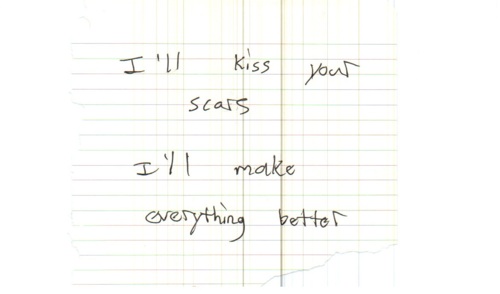 I'll kiss your
scars
I'll make
everything better